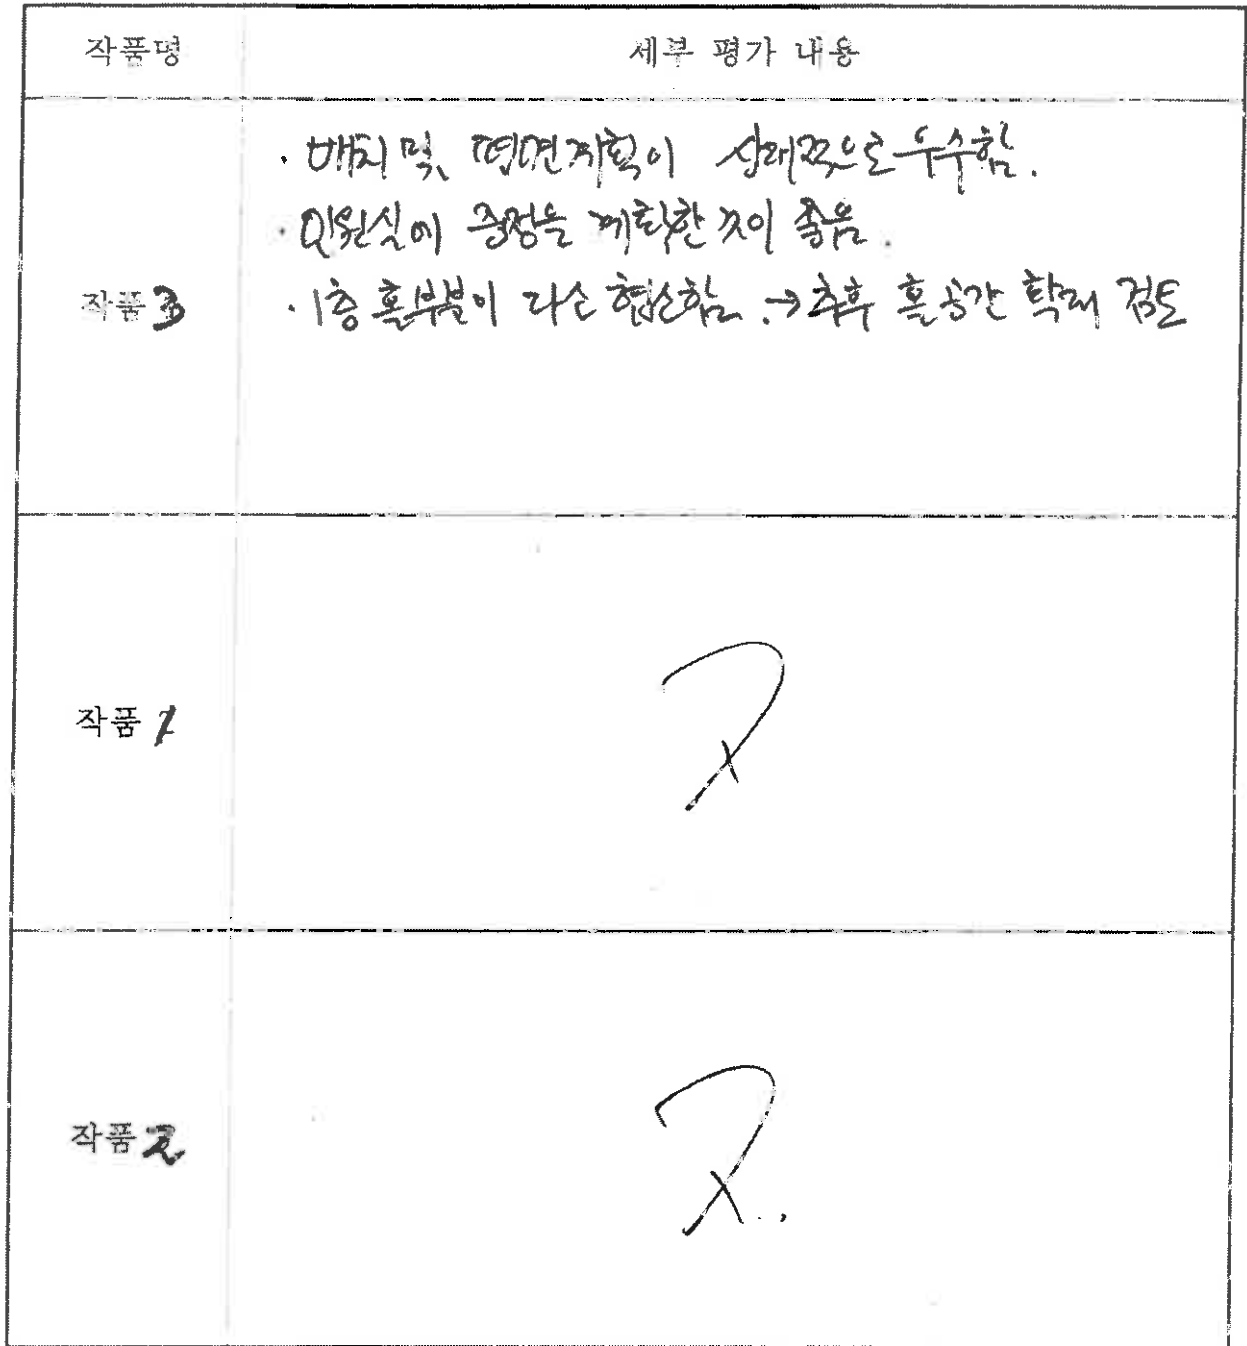 작품명 세부 평가 내용
· 배치 및 평면계획이 상대적으로 우수함.
· 민원실에 중정을 계획한 것이 좋음.
작품 3 · 1층 홀부분이 다소 협소함. → 추후 홀공간 확대 검토
작품 1
작품 2